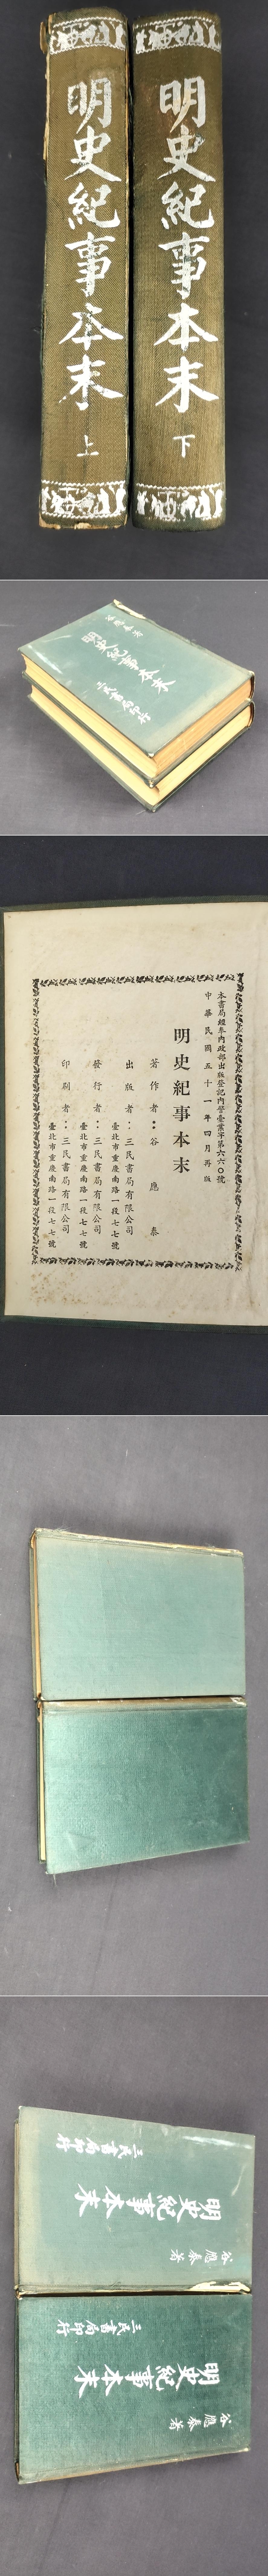 明史紀事本末 上
明史紀事本末 下
谷應泰著
明史紀事本末
三民書局印行
本書局經奉內政部出版登記內警臺業字第六六〇號
中華民國五十一年四月再版
明史紀事本末
著作者：谷應泰
出版者：三民書局有限公司
臺北市重慶南路一段七七號
發行者：三民書局有限公司
臺北市重慶南路一段七七號
印刷者：三民書局有限公司
臺北市重慶南路一段七七號
谷應泰著
明史紀事本末
三民書局印行
谷應泰著
明史紀事本末
三民書局印行